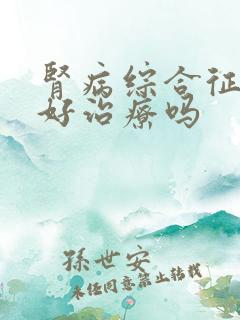 腎病综合征
好治療吗
孫世安
未经同意禁止转载